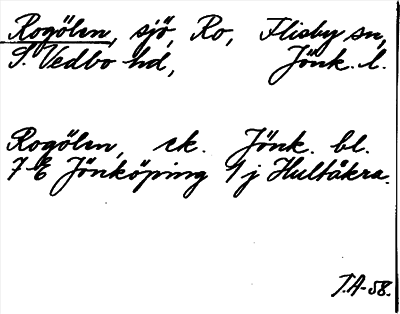 Rogölen, sjö, Ro, Flisby sn,
S. Vedbo hd, Jönk. l.
Rogölen, ek. Jönk. bl.
7 E Jönköping 1 j Hultåkra.
T.A-58.